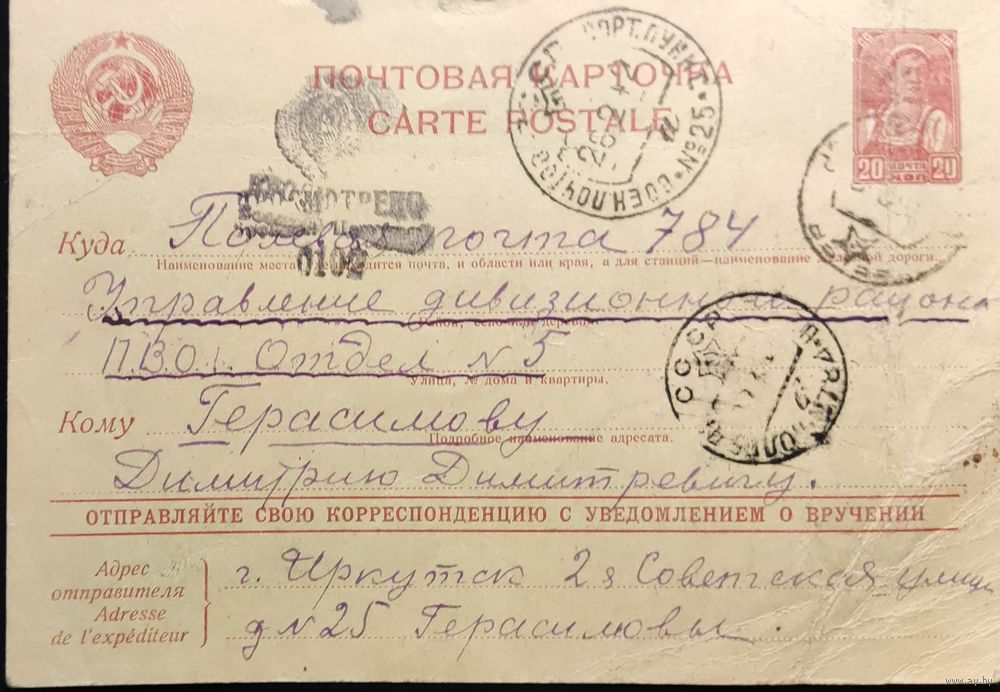 ПОЧТОВАЯ КАРТОЧКА
CARTE POSTALE
20 ПОЧТА 20
ВОЕН. ПОЧТОВ. СОРТ. ПУНКТ № 25
26 2 42
ПРОСМОТРЕНО
Военной Цензурой
0102
Куда Полевая почта 784
Наименование места, где находится почта, и области или края, а для станций—наименование железной дороги.
Управление дивизионный района
Район, село или деревня.
П.В.О. Отдел №5
Улица, № дома и квартиры.
СССР
Кому Герасимову
Подробное наименование адресата.
Димитрию Димитревичу.
ОТПРАВЛЯЙТЕ СВОЮ КОРРЕСПОНДЕНЦИЮ С УВЕДОМЛЕНИЕМ О ВРУЧЕНИИ
Адрес отправителя
Adresse de l'expéditeur
г. Иркутск 2я Советская улица
д №25 Герасимовы
www.ay.by